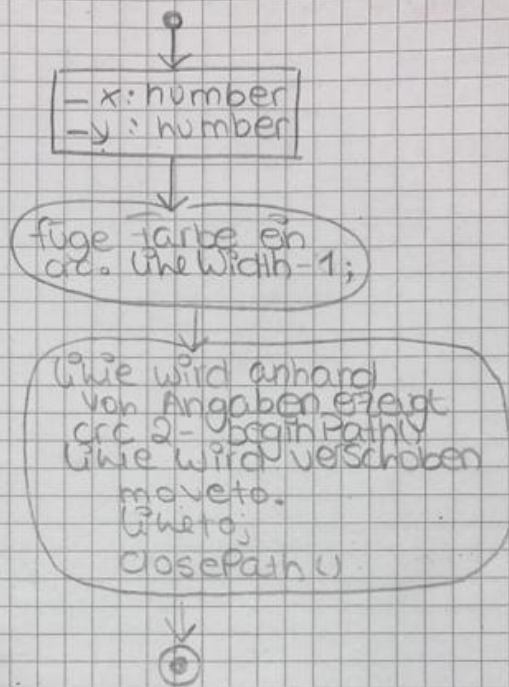 - x: number
- y: number
füge Farbe ein
crc. lineWidth-1;
Linie wird anhand
von Angaben erzeugt
crc 2- beginPath()
Linie wird verschoben
moveto.
lineto;
closePath()